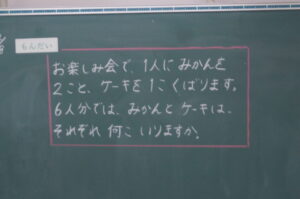 もんだい
お楽しみ会で、1人に みかんを
2こと、ケーキを 1こくばります。
6人分では、みかんと ケーキは、
それぞれ 何こ いりますか。